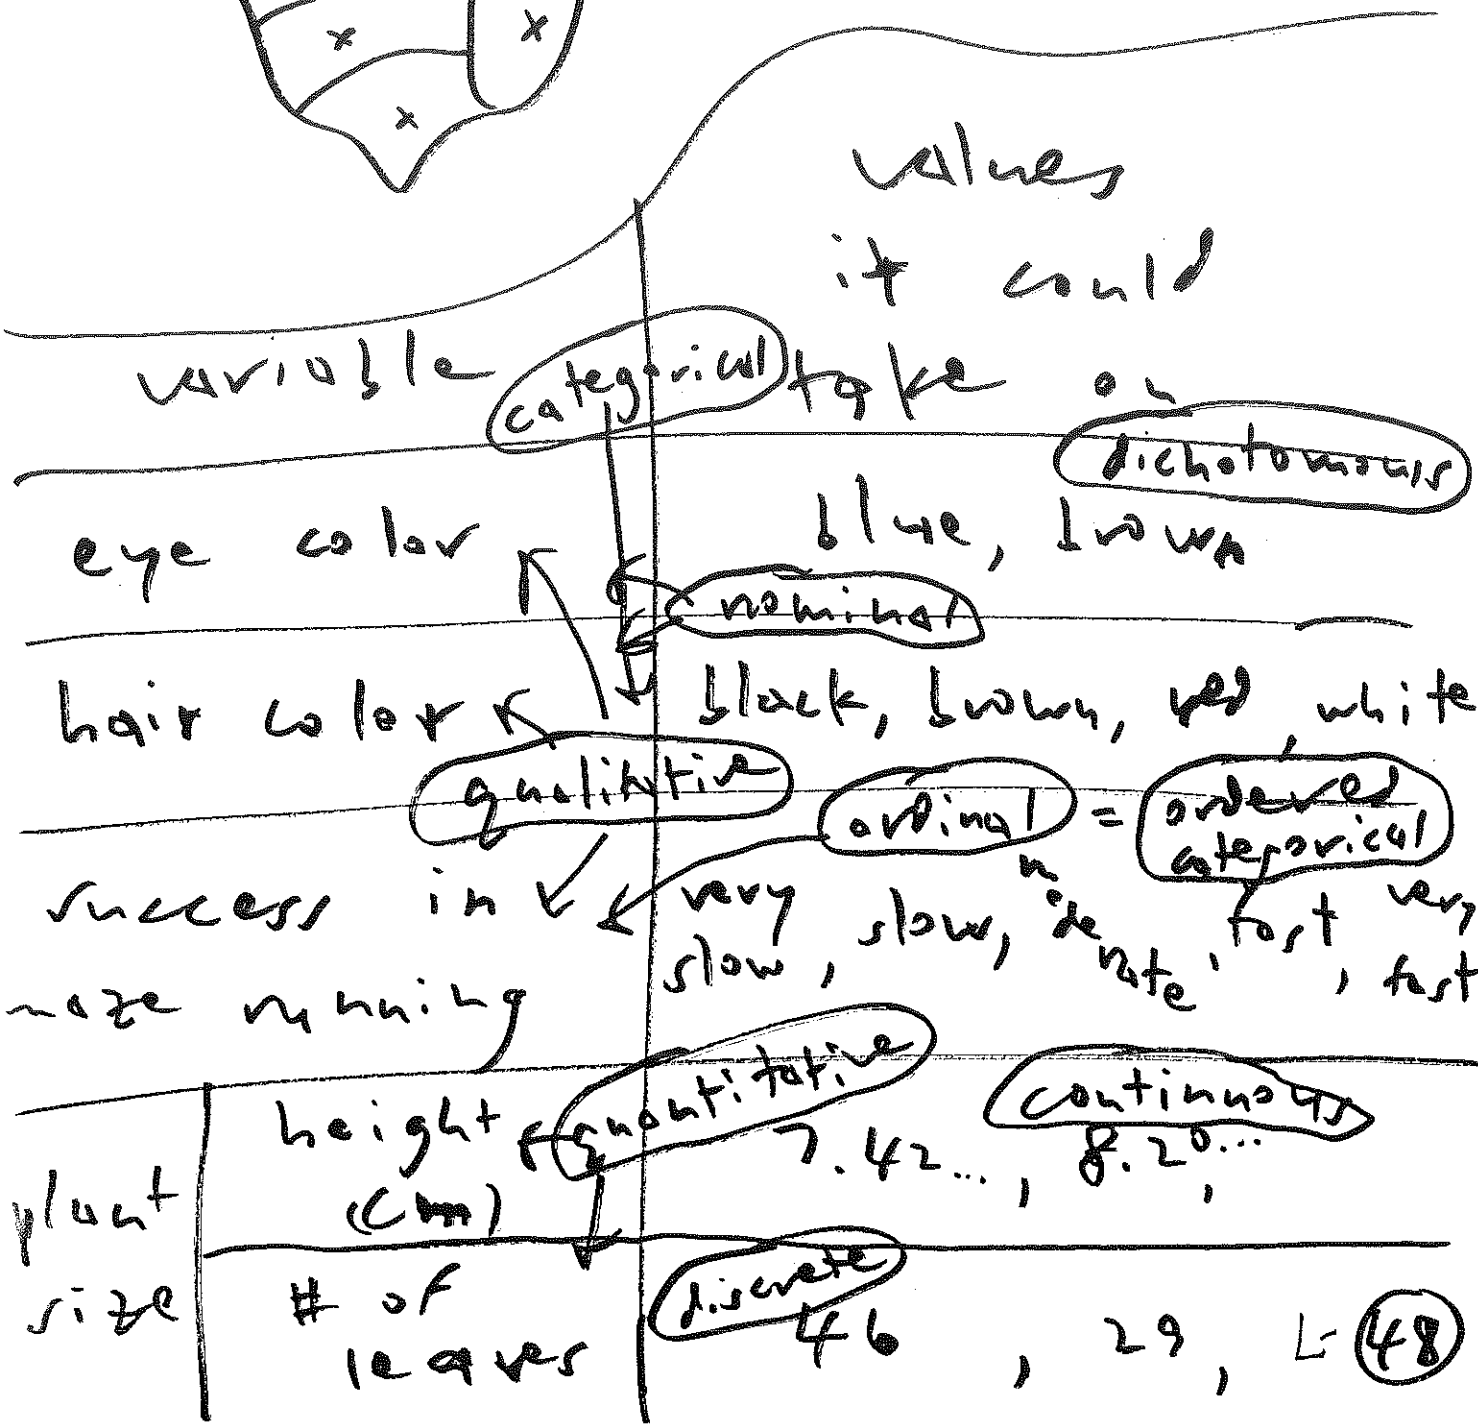 x x
x
values
it could
variable categorical take on
dichotomous
eye color blue, brown
nominal
hair color black, brown, red, white
qualitative ordinal = ordered categorical
success in maze running very slow, slow, moderate, fast, very fast
quantitative continuous
plant size height (cm) 7.42..., 8.20...,
discrete
# of leaves 46, 29, L-48